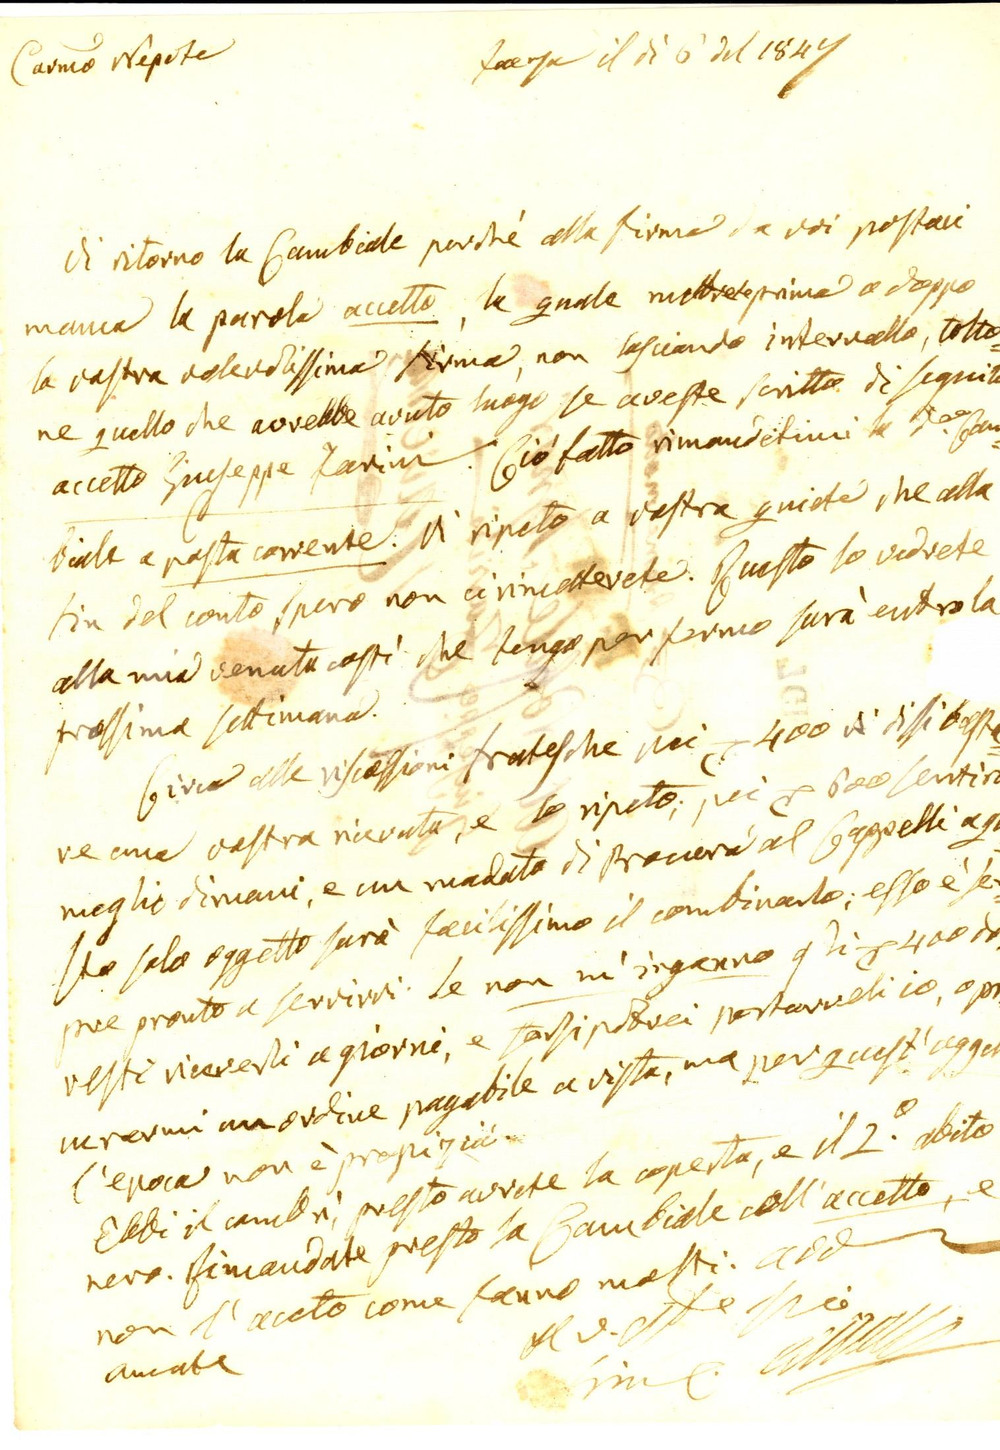 Carmo Nepote
Faenza il dì 6 del 1847
Di ritorno la Cambiale perché alla firma da voi postavi
manca la parola accetto, la quale metterete prima o doppo
la vostra valevolissima firma, non lasciando intervallo, tolto=
ne quello che avrebbe avuto luogo se aveste scritto di seguito
accetto Giuseppe Zarini. Ciò fatto rimandatimi la Cam=
biale a posta corrente. Vi ripeto a vostra quiete che alla
fin del conto spero non ci rimetterete. Questo lo vedrete
alla mia venuta costì che tengo per fermo sarà entro la
prossima settimana.
Circa alle riscossioni fratesche pei 400 vi dissi baste=
re una vostra ricevuta, e lo ripeto; pei 600 sentirò
meglio dimani, e un mandato di Procura al Cappelli a que=
sto solo oggetto sarà facilissimo il combinarlo; esso è sé=
pre pronto a servirvi. Se non m'inganno gli 400 do=
vesti riceverli a giorni, e forsi potrei portarveli io, o pro
curarmi un ordine pagabile a vista, ma per quest'oggetto
l'epoca non è propizia.
Ebbi il cambrì, presto avrete la coperta, e il 2.o abito
nero. Rimandate presto la Cambiale coll'accetto, e
non l'aceto come fanno molti. Add
amate